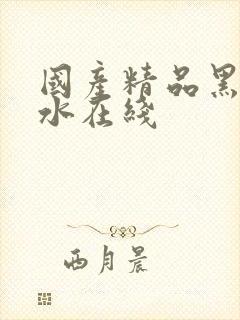 國產精品黑
水在綫
西月晨